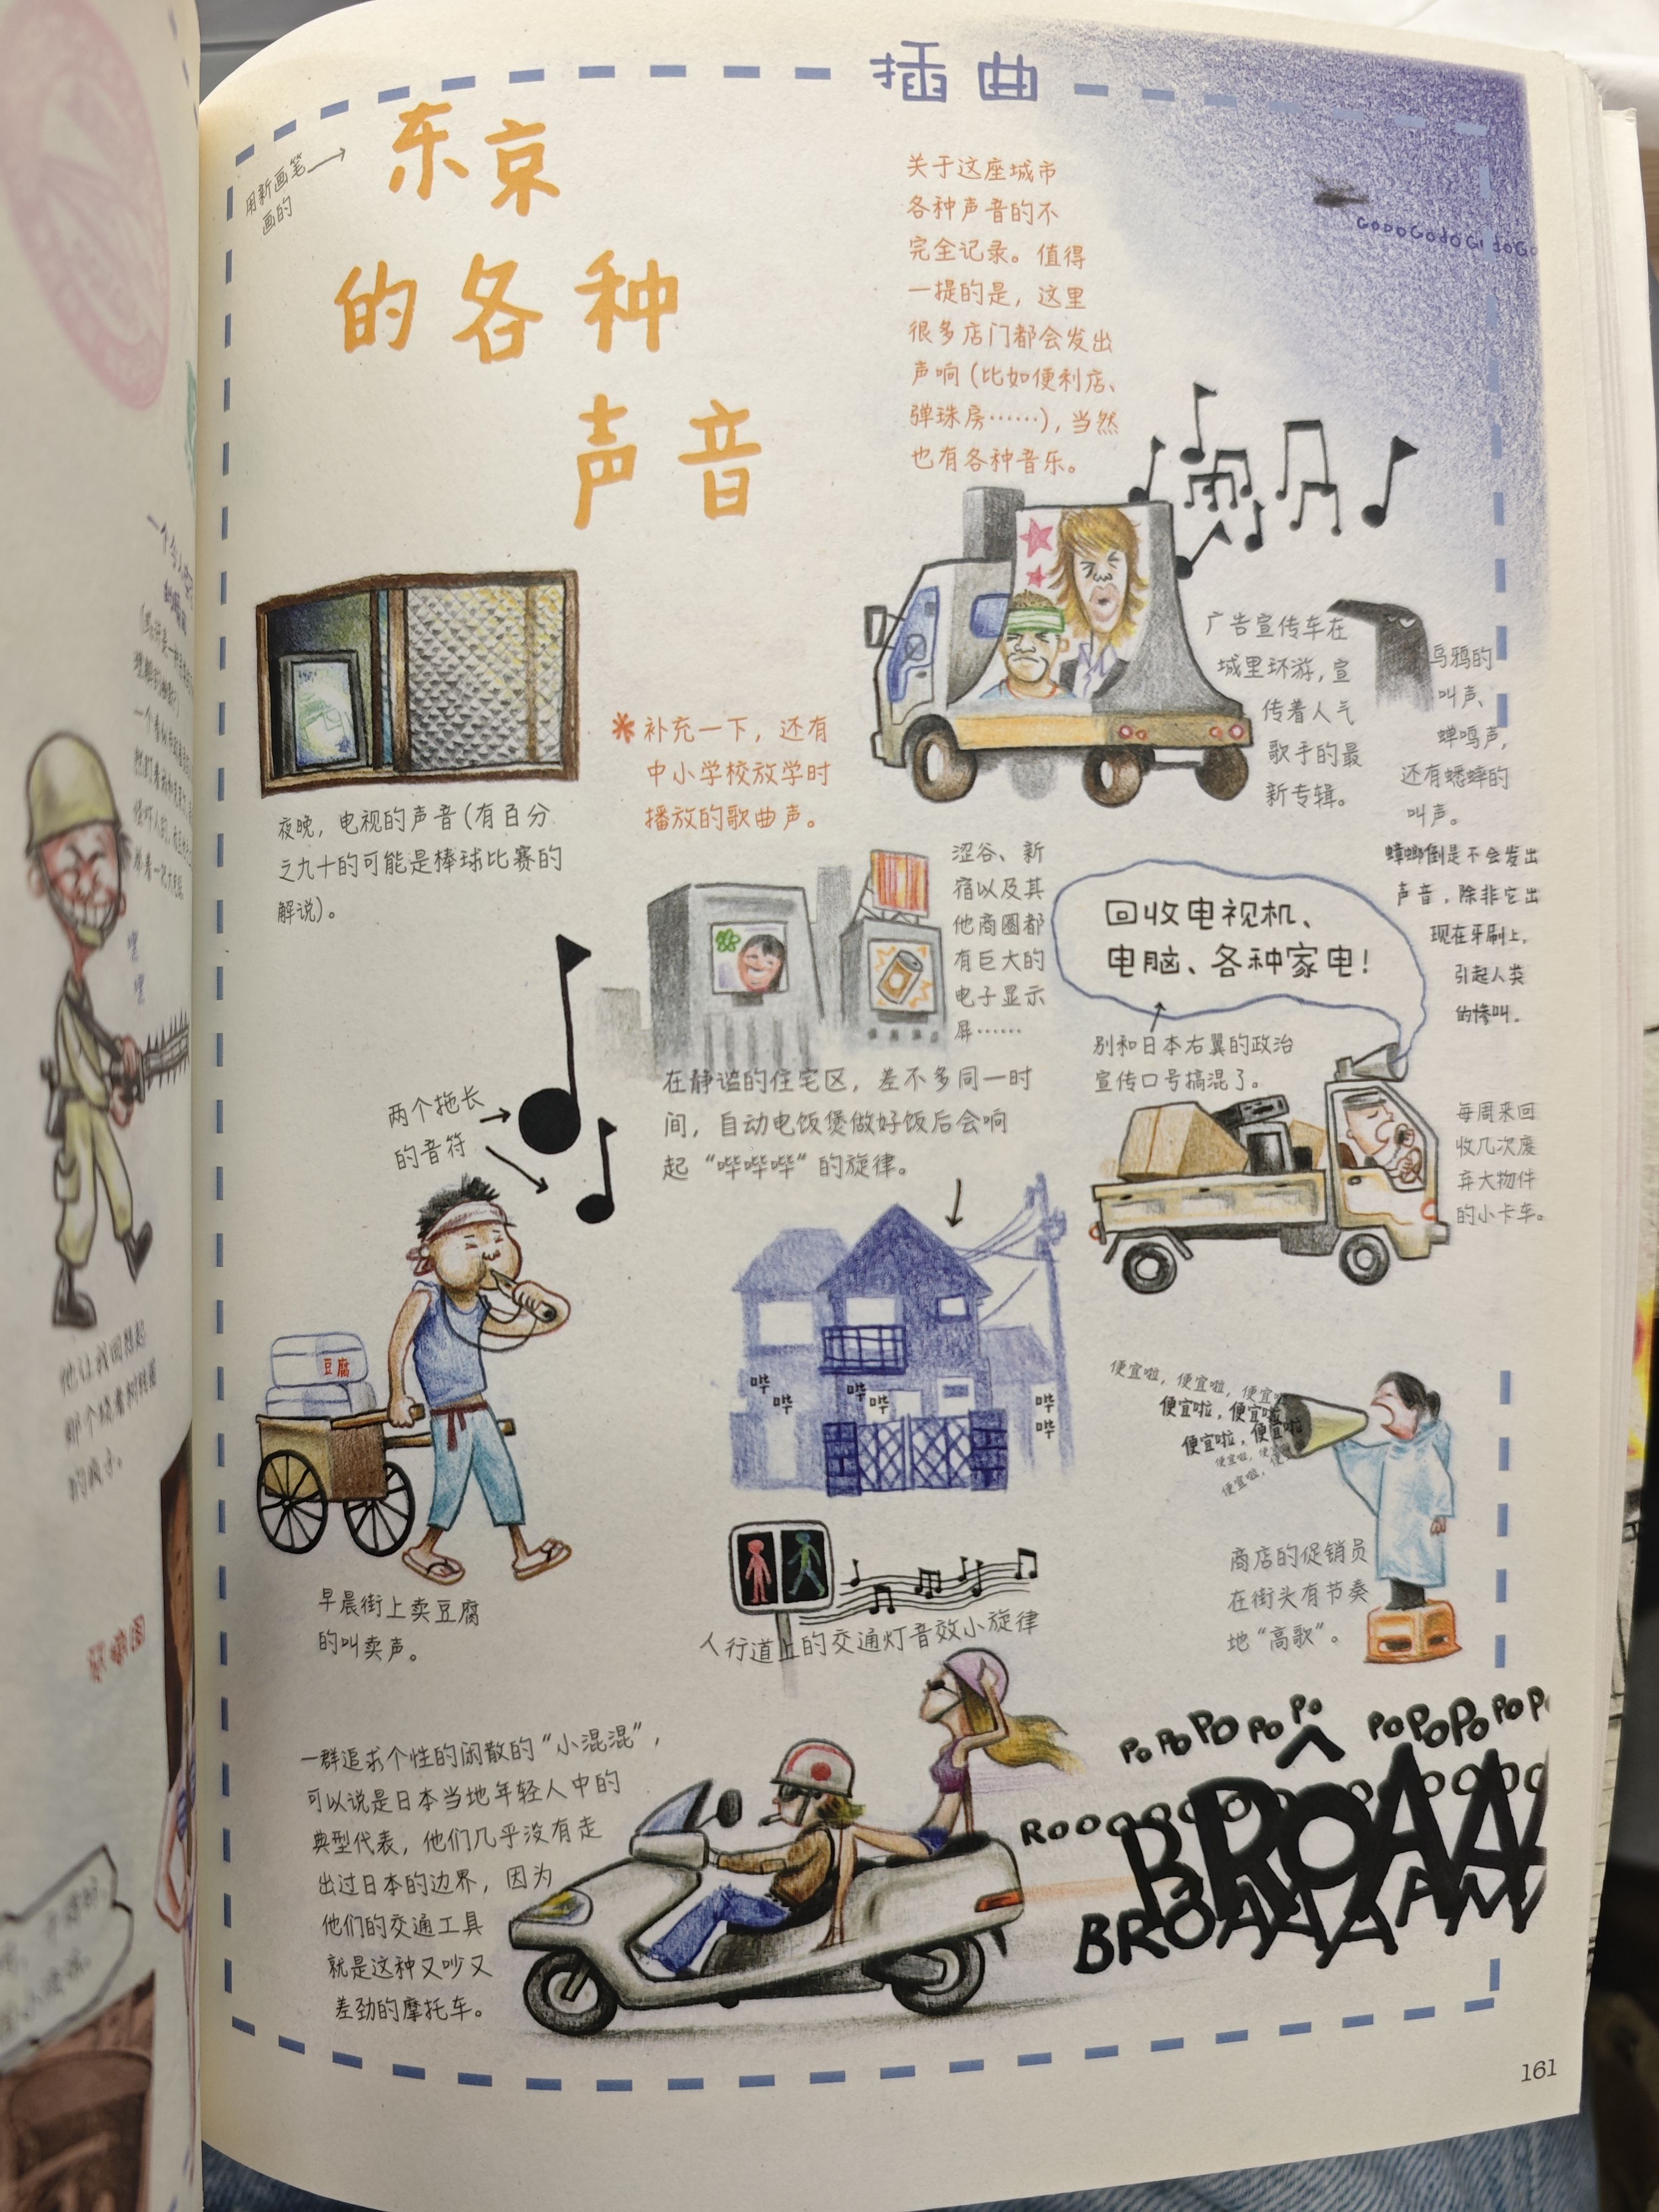 插曲
用新画笔
画的
东京
的各种
声音
关于这座城市
各种声音的不
完全记录。值得
一提的是，这里
很多店门都会发出
声响（比如便利店、
弹珠房……），当然
也有各种音乐。
GODOGODOGODOGO
广告宣传车在
城里环游，宣
传着人气
歌手的最
新专辑。
乌鸦的
叫声、
蝉鸣声，
还有蟋蟀的
叫声。
蟑螂倒是不会发出
声音，除非它出
现在牙刷上，
引起人类
的惨叫。
夜晚，电视的声音（有百分
之九十的可能是棒球比赛的
解说）。
*补充一下，还有
中小学校放学时
播放的歌曲声。
涩谷、新
宿以及其
他商圈都
有巨大的
电子显示
屏……
回收电视机、
电脑、各种家电！
别和日本右翼的政治
宣传口号搞混了。
每周来回
收几次废
弃大物件
的小卡车。
两个拖长
的音符
豆腐
早晨街上卖豆腐
的叫卖声。
在静谧的住宅区，差不多同一时
间，自动电饭煲做好饭后会响
起“哔哔哔”的旋律。
哔
哔
哔
哔
哔
哔
便宜啦，便宜啦，便宜啦
便宜啦，便宜啦
便宜啦，便宜啦
便宜啦，便
便宜啦，便
商店的促销员
在街头有节奏
地“高歌”。
人行道上的交通灯音效小旋律
一群追求个性的闲散的“小混混”，
可以说是日本当地年轻人中的
典型代表，他们几乎没有走
出过日本的边界，因为
他们的交通工具
就是这种又吵又
差劲的摩托车。
PoPoPoPoPo PoPoPoPoP
161
嘿
嘿
他让我回想起
那个绕着树转圈
的疯子。